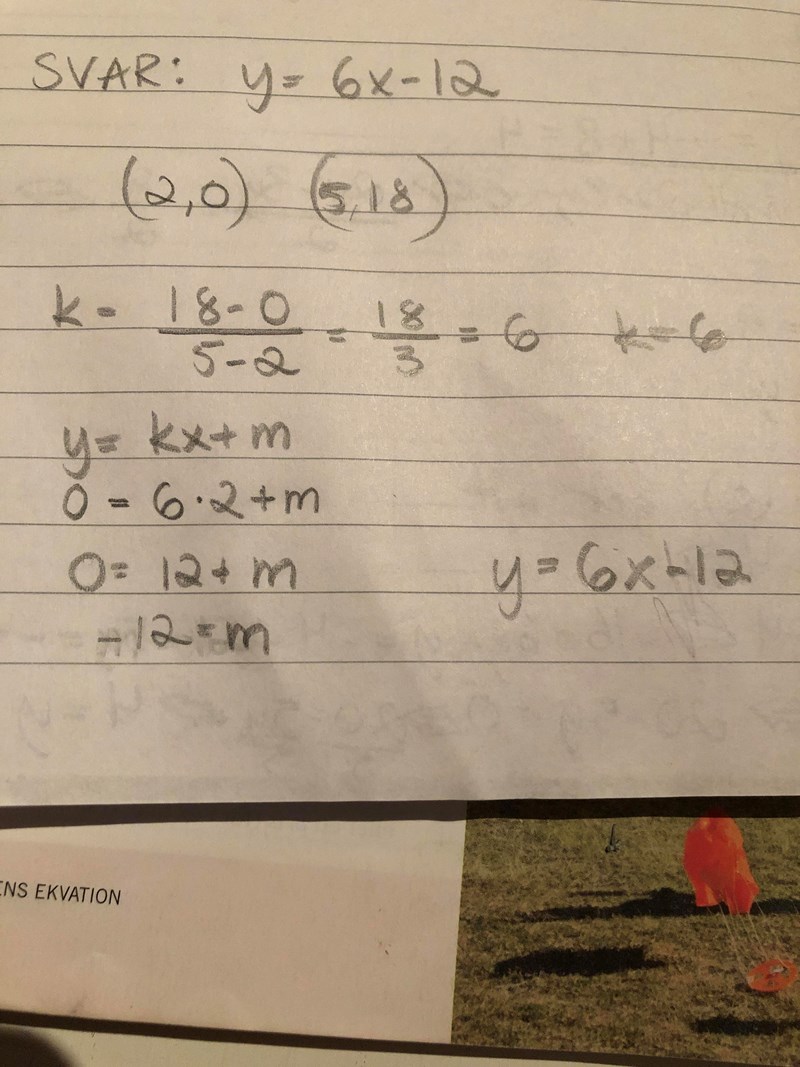 SVAR: y = 6x-12
(2,0) (5,18)
k = 18-0 / 5-2 = 18 / 3 = 6 k=6
y = kx+m
0 = 6·2+m
0 = 12+m
-12 = m
y = 6x-12
ENS EKVATION